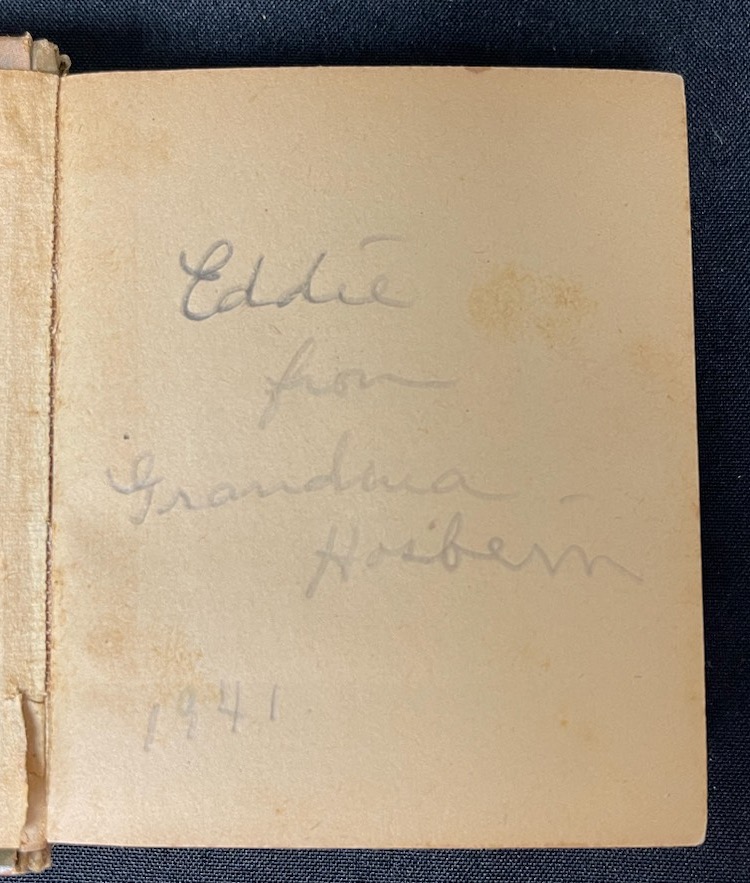 Eddie
from
Grandma
Hosbein
1941